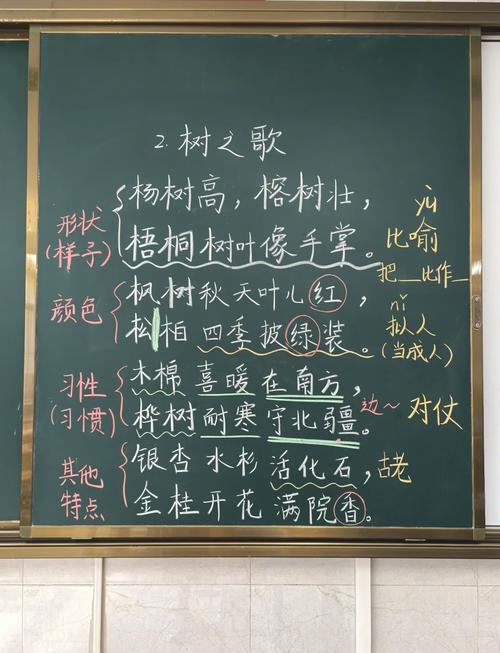 2. 树之歌
杨树高，榕树壮，
梧桐树叶像手掌。
枫树秋天叶儿红，
松柏四季披绿装。
木棉喜暖在南方，
桦树耐寒守北疆。
银杏水杉活化石，
金桂开花满院香。
形状
(样子)
颜色
习性
(习惯)
其他
特点
yù
比喻
把__比作_
nǐ
拟人
(当成人)
边~
对仗
古老